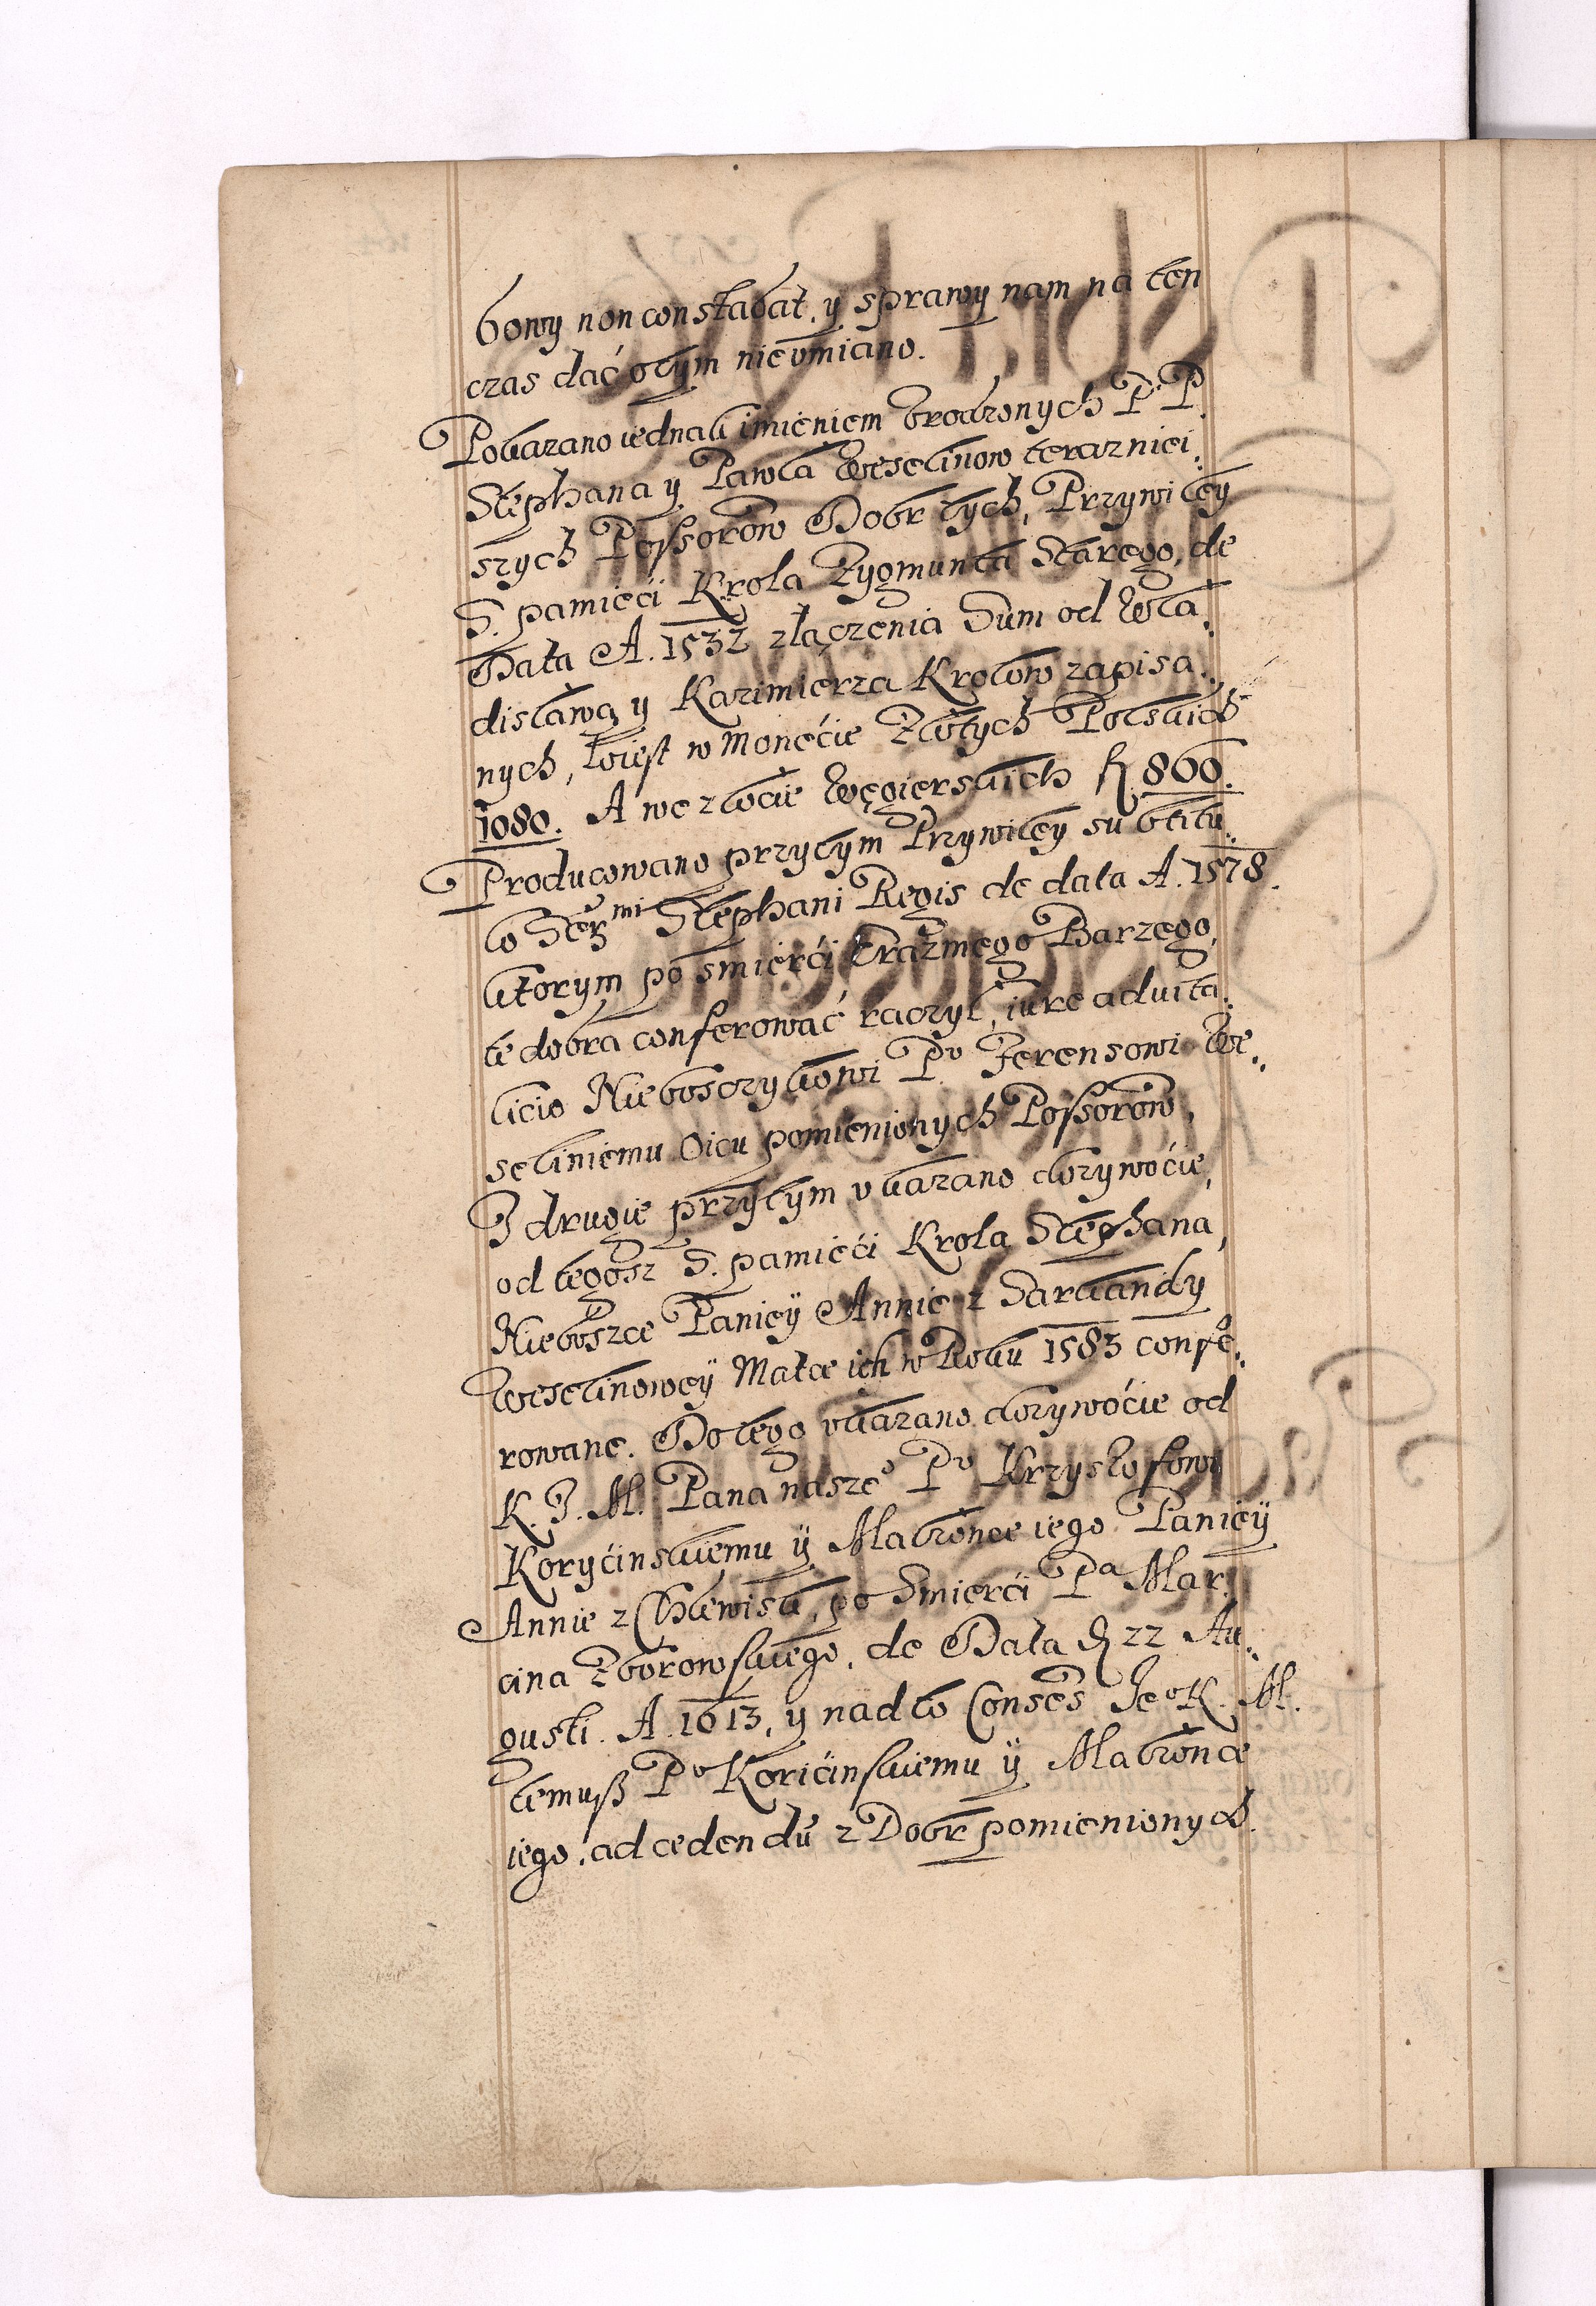 kowy non constabat. y sprawy nam na ten
czas dać o tym nie vmiano.
Pokazano iednak imieniem Vrodzonych P. P.
Stephana y Pawła Weselinow terazniei.
szych Possorow Dobr tych, Przywiley
S. pamięći Krola Zygmunta Starego, de
Data A. 1532 złączenia Sum od Wła.
disława y Kazimierza Krolow zapisa.
nych, to iest w Monećie Złotych Polskich
1080. A we złoćie Węgierskich fl 860.
Producowano przytym Przywiley sub titu.
lo Ser mi Stephani Regis de data A. 1578.
ktorym po smierći Erazmego Barzego,
te dobra conferować raczył, iure aduita.
licio Nieboszczykowi Pu Ferensowi We.
seliniemu Oicu pomienionych Possorow,
I drugie przytym vkazano dożywoćie,
od tegosz S. pamięći Krola Stephana,
Nieboszce Paniey Annie z Sarkandy
Weselinowey Matce ich w Roku 1583 confe.
rowane. Do tego vkazano dożywoćie od
K. J. M. Pana nasze° Pu Krzysztofowi
Koryćinskiemu ÿ Małżonce iego Panieÿ
Annie z Chlewisk, po Smierći Pa Mar.
cina Zborowskiego. de Data d 22 Au.
gusti. A. 1613, y nad to Conses Je° K. M.
temuß P° Korićinskiemu ÿ Małżonce
iego. ad cedendu z Dobr pomienionych